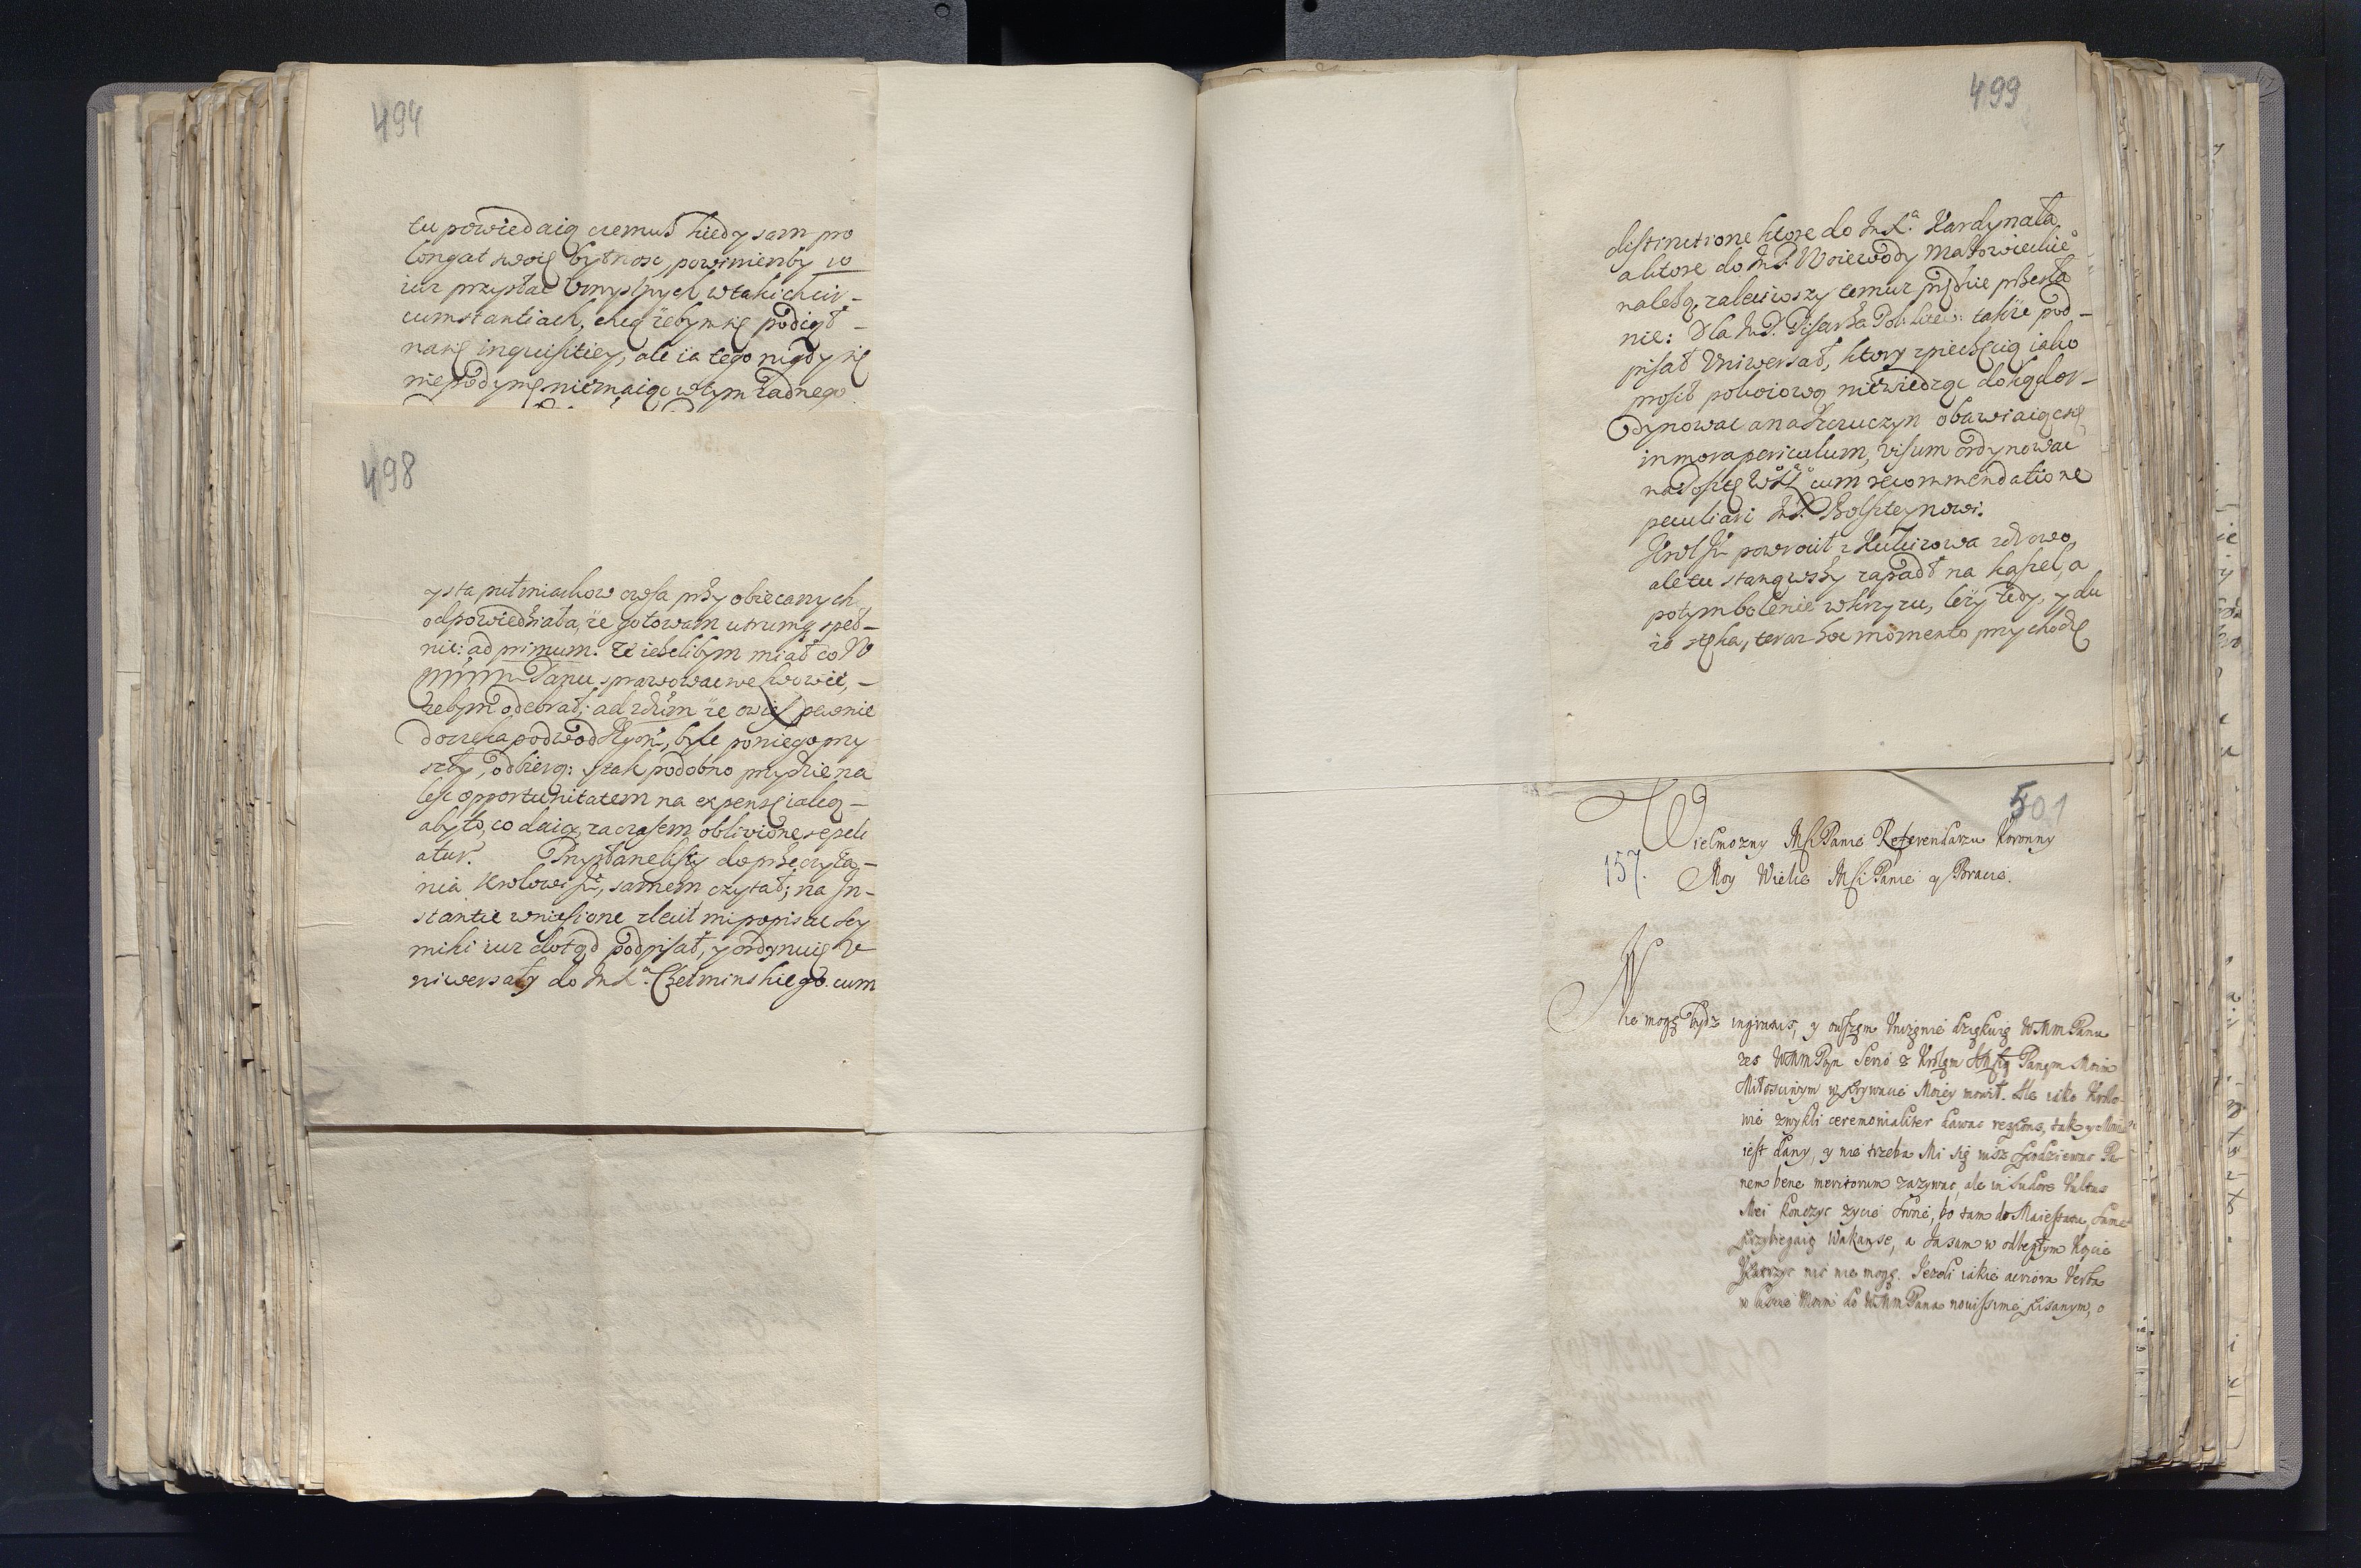 494
tu powiedaią czemuż kiedy sam pro
longat swoię bytnosc powinienby io
iuz przysłac Vmyslnych w takich cir-
cumstantiach, chcą żebym się podiął -
na się inquisitiey, ale ia tego nigdy się
nie podymę nie maiąc w tym żadnego
498
y sta pułmiarkow owsa przy obiecanych
odpowiedziała, że gotowam utrumq speł-
nic: ad primum. że ieżelibym miał co W
Panu sprawowac we Lwowie, -
żebym odebrał; ad 2dum że owies pewnie
doczeka podwod Kyoni, byle poniego przy
szły, odbierą: y tak podobno przydzie na
lesc opportunitatem na expensę iaką -
aby to, co daią, za czasem oblivione sepeli
atur. Przysłane listy do przeczyta -
nia Krolowi Jmci, samem czytał; na In-
stantie wniesione zlecił mi popisac Sey
miki iuz dotąd podpisał, y ordynuię V
niwersały do Jmci Xa. Chełminskiego. cum
499
distinctione ktore do Jmci Xa. Kardynała
a ktore do JmP. Woiewody Mazowieckie°
należą, zaleciwszy temuz prędkie przesła
nie: Dla JmP. Pisarza także pod -
pisał Vniwersał, ktory spiechęcią iako
prosił pokoiową niewiedząc dokąd or-
dynowac a na Szczuczyn obawiaiąc się
in mora periculum, visum ordynowac
na Posztę cum recommendatione
peculiari JmP. Holszteynowi.
Krol Jmc powrocił z Kukizowa zdrowo,
ale tu stanąwszy zapadł na kaszel, a
potym bolenie w krzyzu, leży tedy, y du
zo stęka, teraz hoc momento przychodzę
501
157.
Wielmozny MsciPanie Referendarzu Koronny
Moy Wielce MsciPanie y Bracie.
Nie mogę bydz ingratus, y owszem Vniżenie dziękuię WMMPanu
zes WMMPan serio z Krolem JMscią Panem Moim
Miłosciwym w prywacie Moiey mowił. Ale iako Krolo-
wie zwykli ceremonialiter dawac respons, tak y Mnie
iest dany, y nie trzeba Mi się wiec spodziewac Pa-
nem bene meritorum zazywac, ale in sudore Vultus
Mei konczyc zycie swoie, bo tam do Maiestatu, same
przybiegaią Wakanse, a Ja sam w odległym Kącie
nic nie mogę. Jezeli iakie acriora Verba
w Liscie Moim do WMMPana novissime pisanym, o